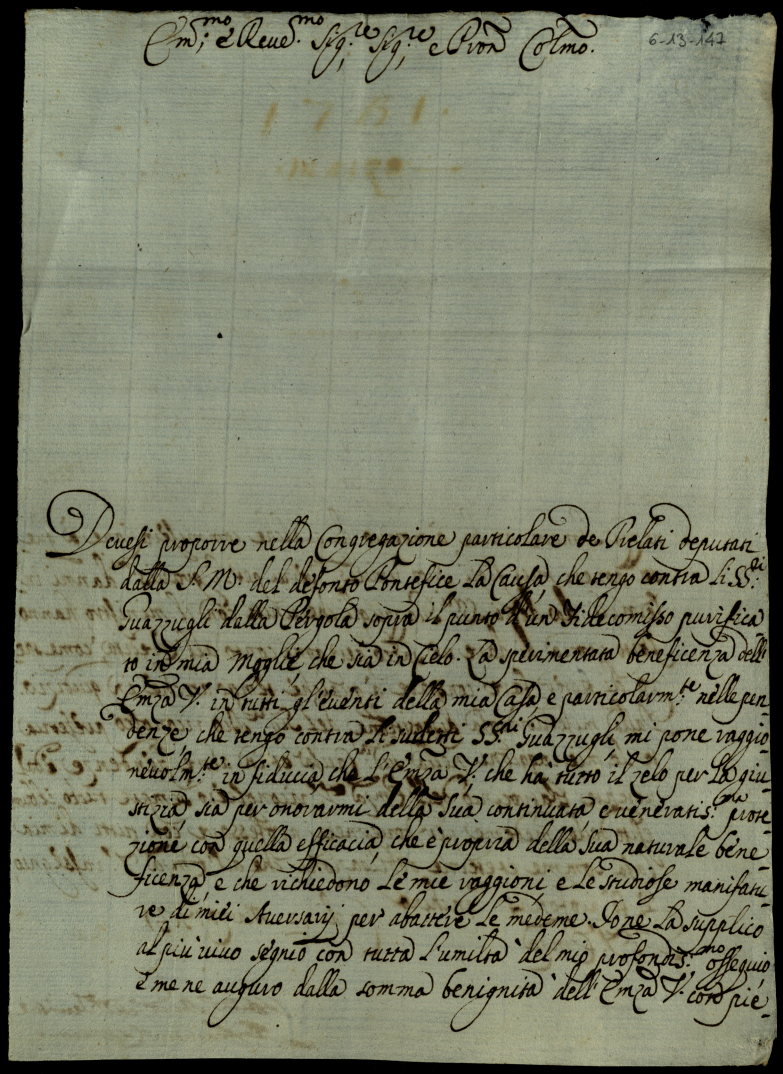 Em.mo e Reve.mo Sig.re Sig.re e Pron Colmo.
6-13-147
Devesi proporre nella Congregazione particolare de Prelati deputati
dalla S. M. del defonto Pontefice La Causa, che tengo contra li SS.ri
Guazzugli dalla Pergola sopra il punto d'un Fidecomisso purifica
to in mia Moglie, che sia in Cielo. La sperimentata beneficenza dell'
Emza V. in tutti gl'eventi della mia Casa, e particolarm.te nelle pen
denze, che tengo contra li sudetti SS.ri Guazzugli, mi pone raggio
nevolm.te in fiducia che l'Emza V. che hà tutto il zelo per La giu
stizia, sia per onorarmi della Sua continuata, e veneratis.ma prote-
zione con quella efficacia, che è propria della Sua naturale bene-
ficenza, e che richiedono Le mie raggioni, e Le studiose manifatu-
re di miei Aversarij per abattere Le medeme. Io ne La supplico
al più vivo segnio con tutta L'umiltà del mio profondis.mo ossequio
e me ne auguro dalla somma benignità dell'Emza V. con pie-